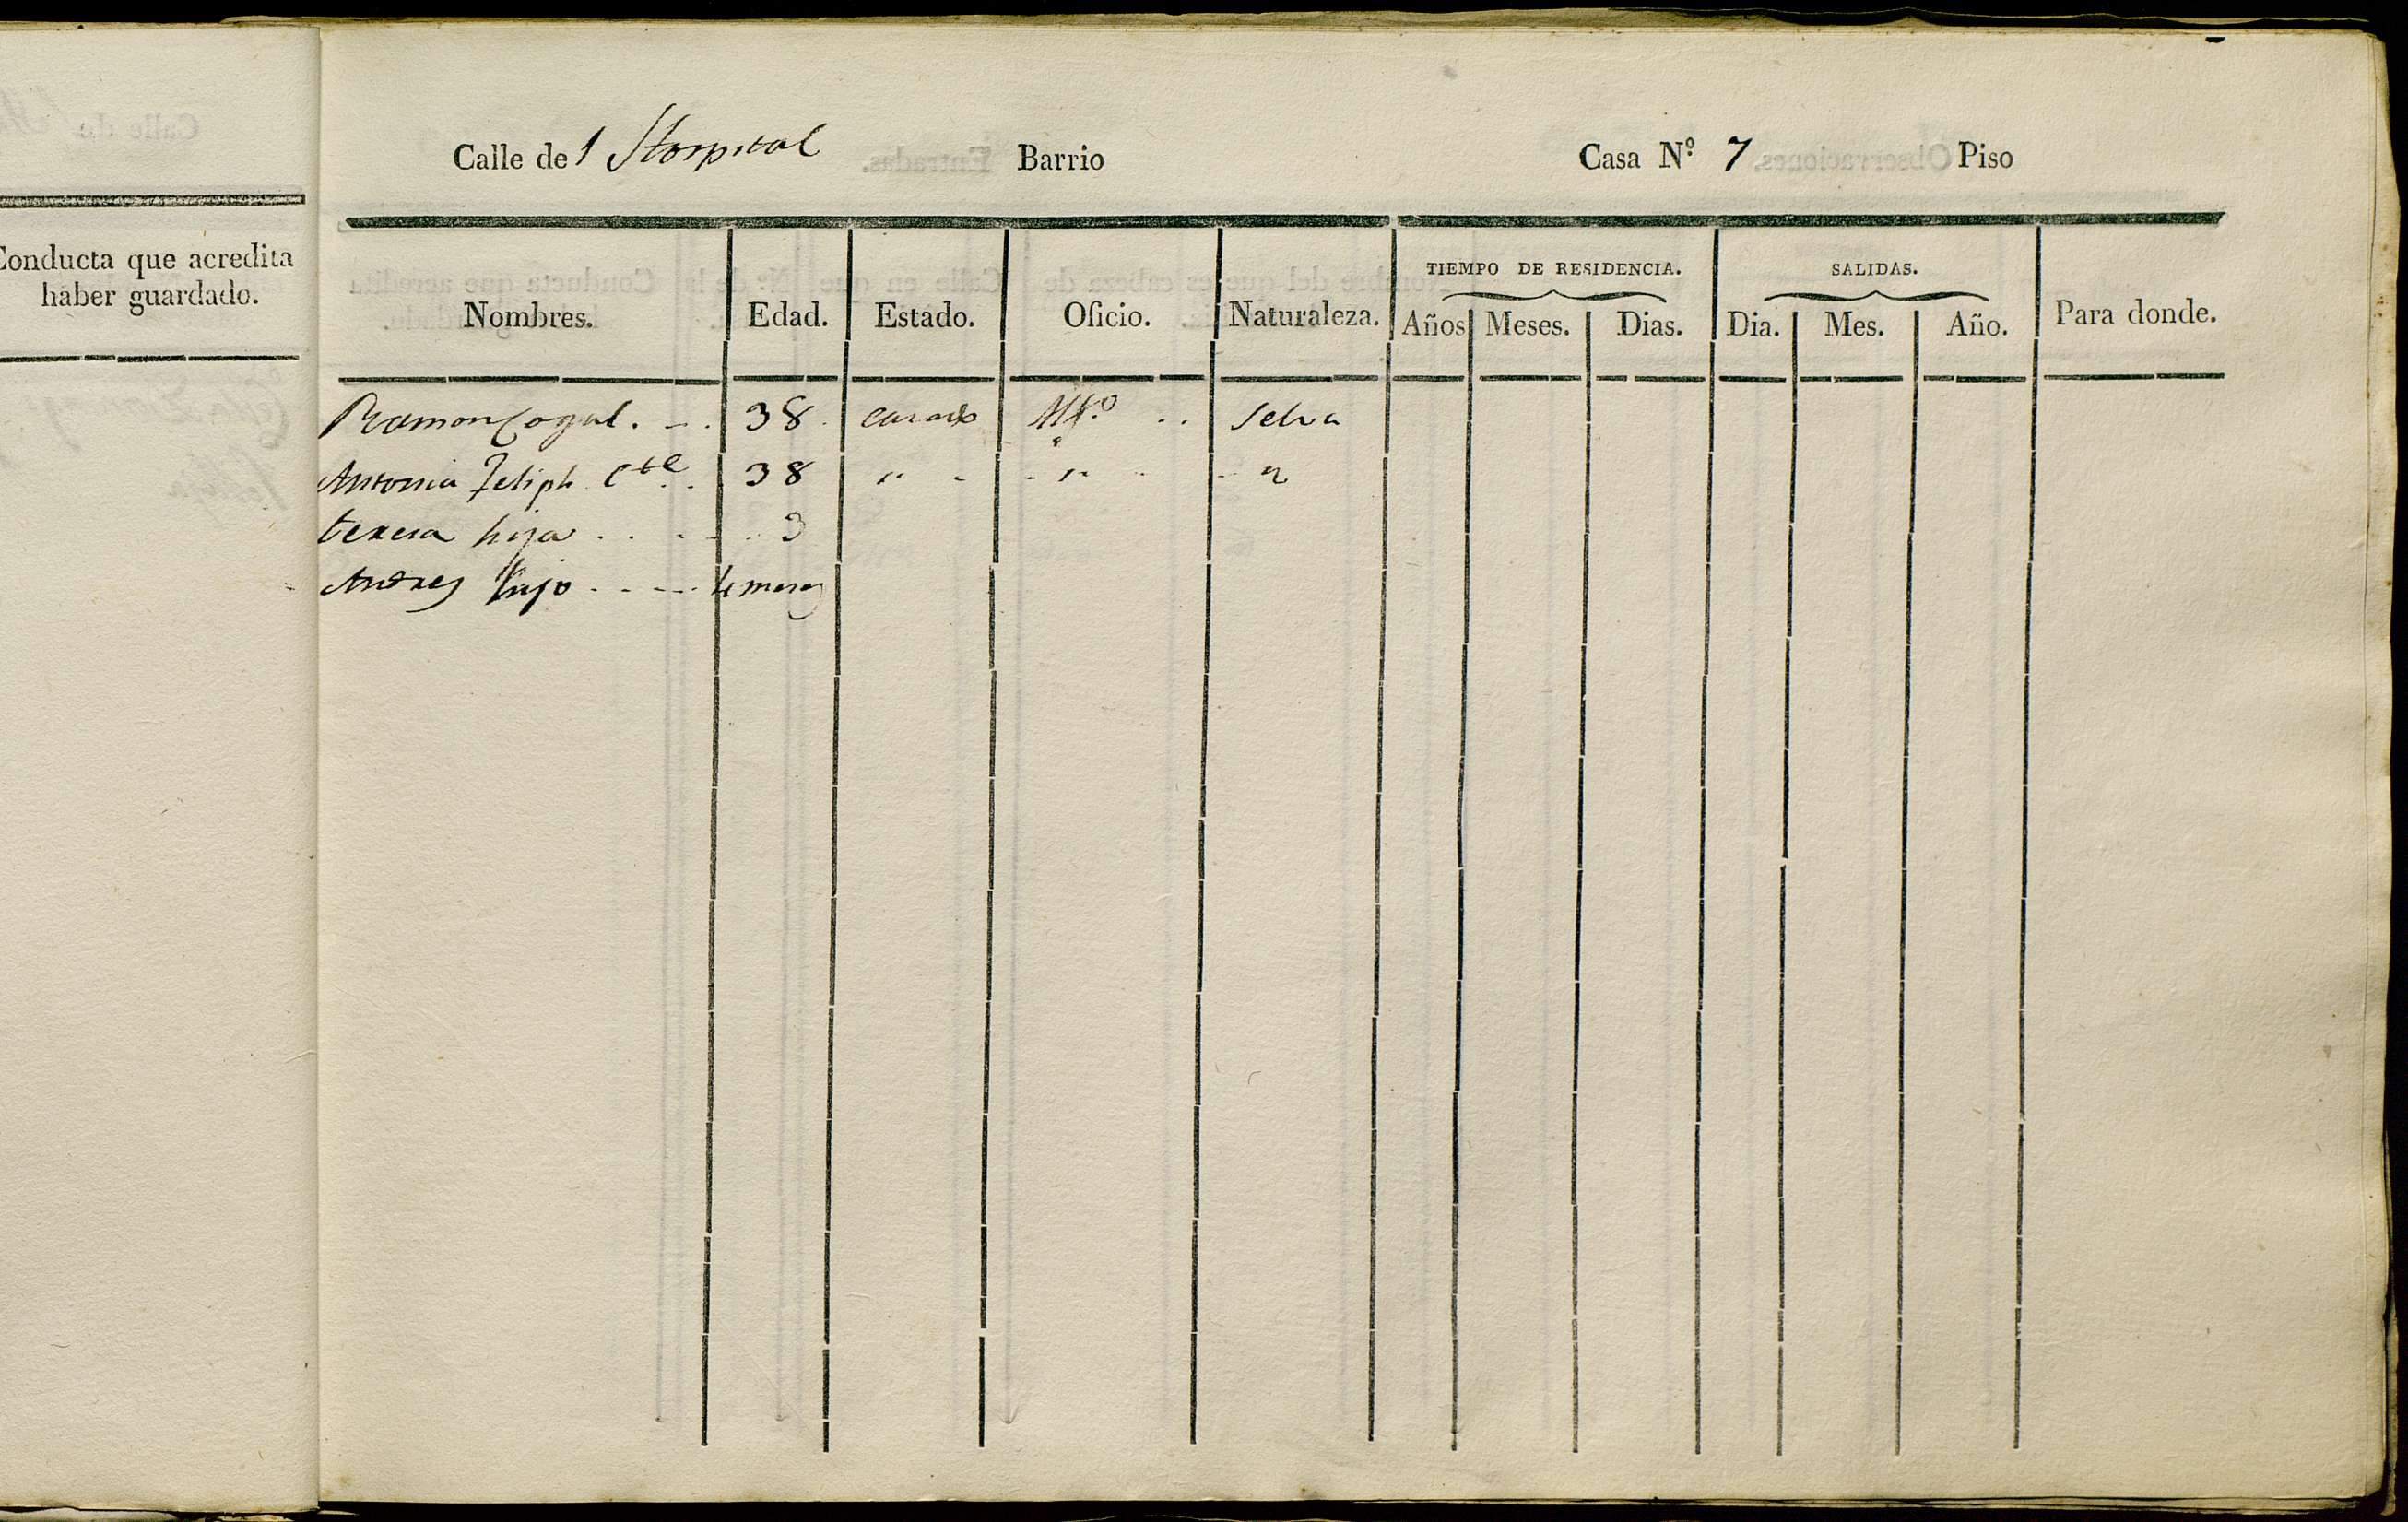 Conducta que acredita
haber guardado.
Calle del Hospital Barrio Casa Nº 7 Piso
TIEMPO DE RESIDENCIA. SALIDAS.
Nombres. Edad. Estado. Oficio. Naturaleza. Años Meses. Dias. Dia. Mes. Año. Para donde.
Ramon Cogul. 38 casado Selva
Antonia Feliph 38 " "
teresa hija 3
Andres hijo 4 meses